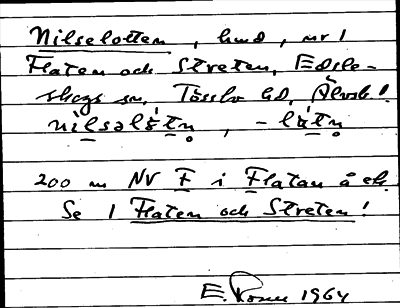 Nilselotten, hmd, nr 1
Flaten och Streten, Edsle-
skogs sn, Tössbo hd, Älvsb. l.
nilsəlòtn̥, -lòtn̥
200 m NV F i Flatan å ek.
Se 1 Flaten och Streten!
E. 1964